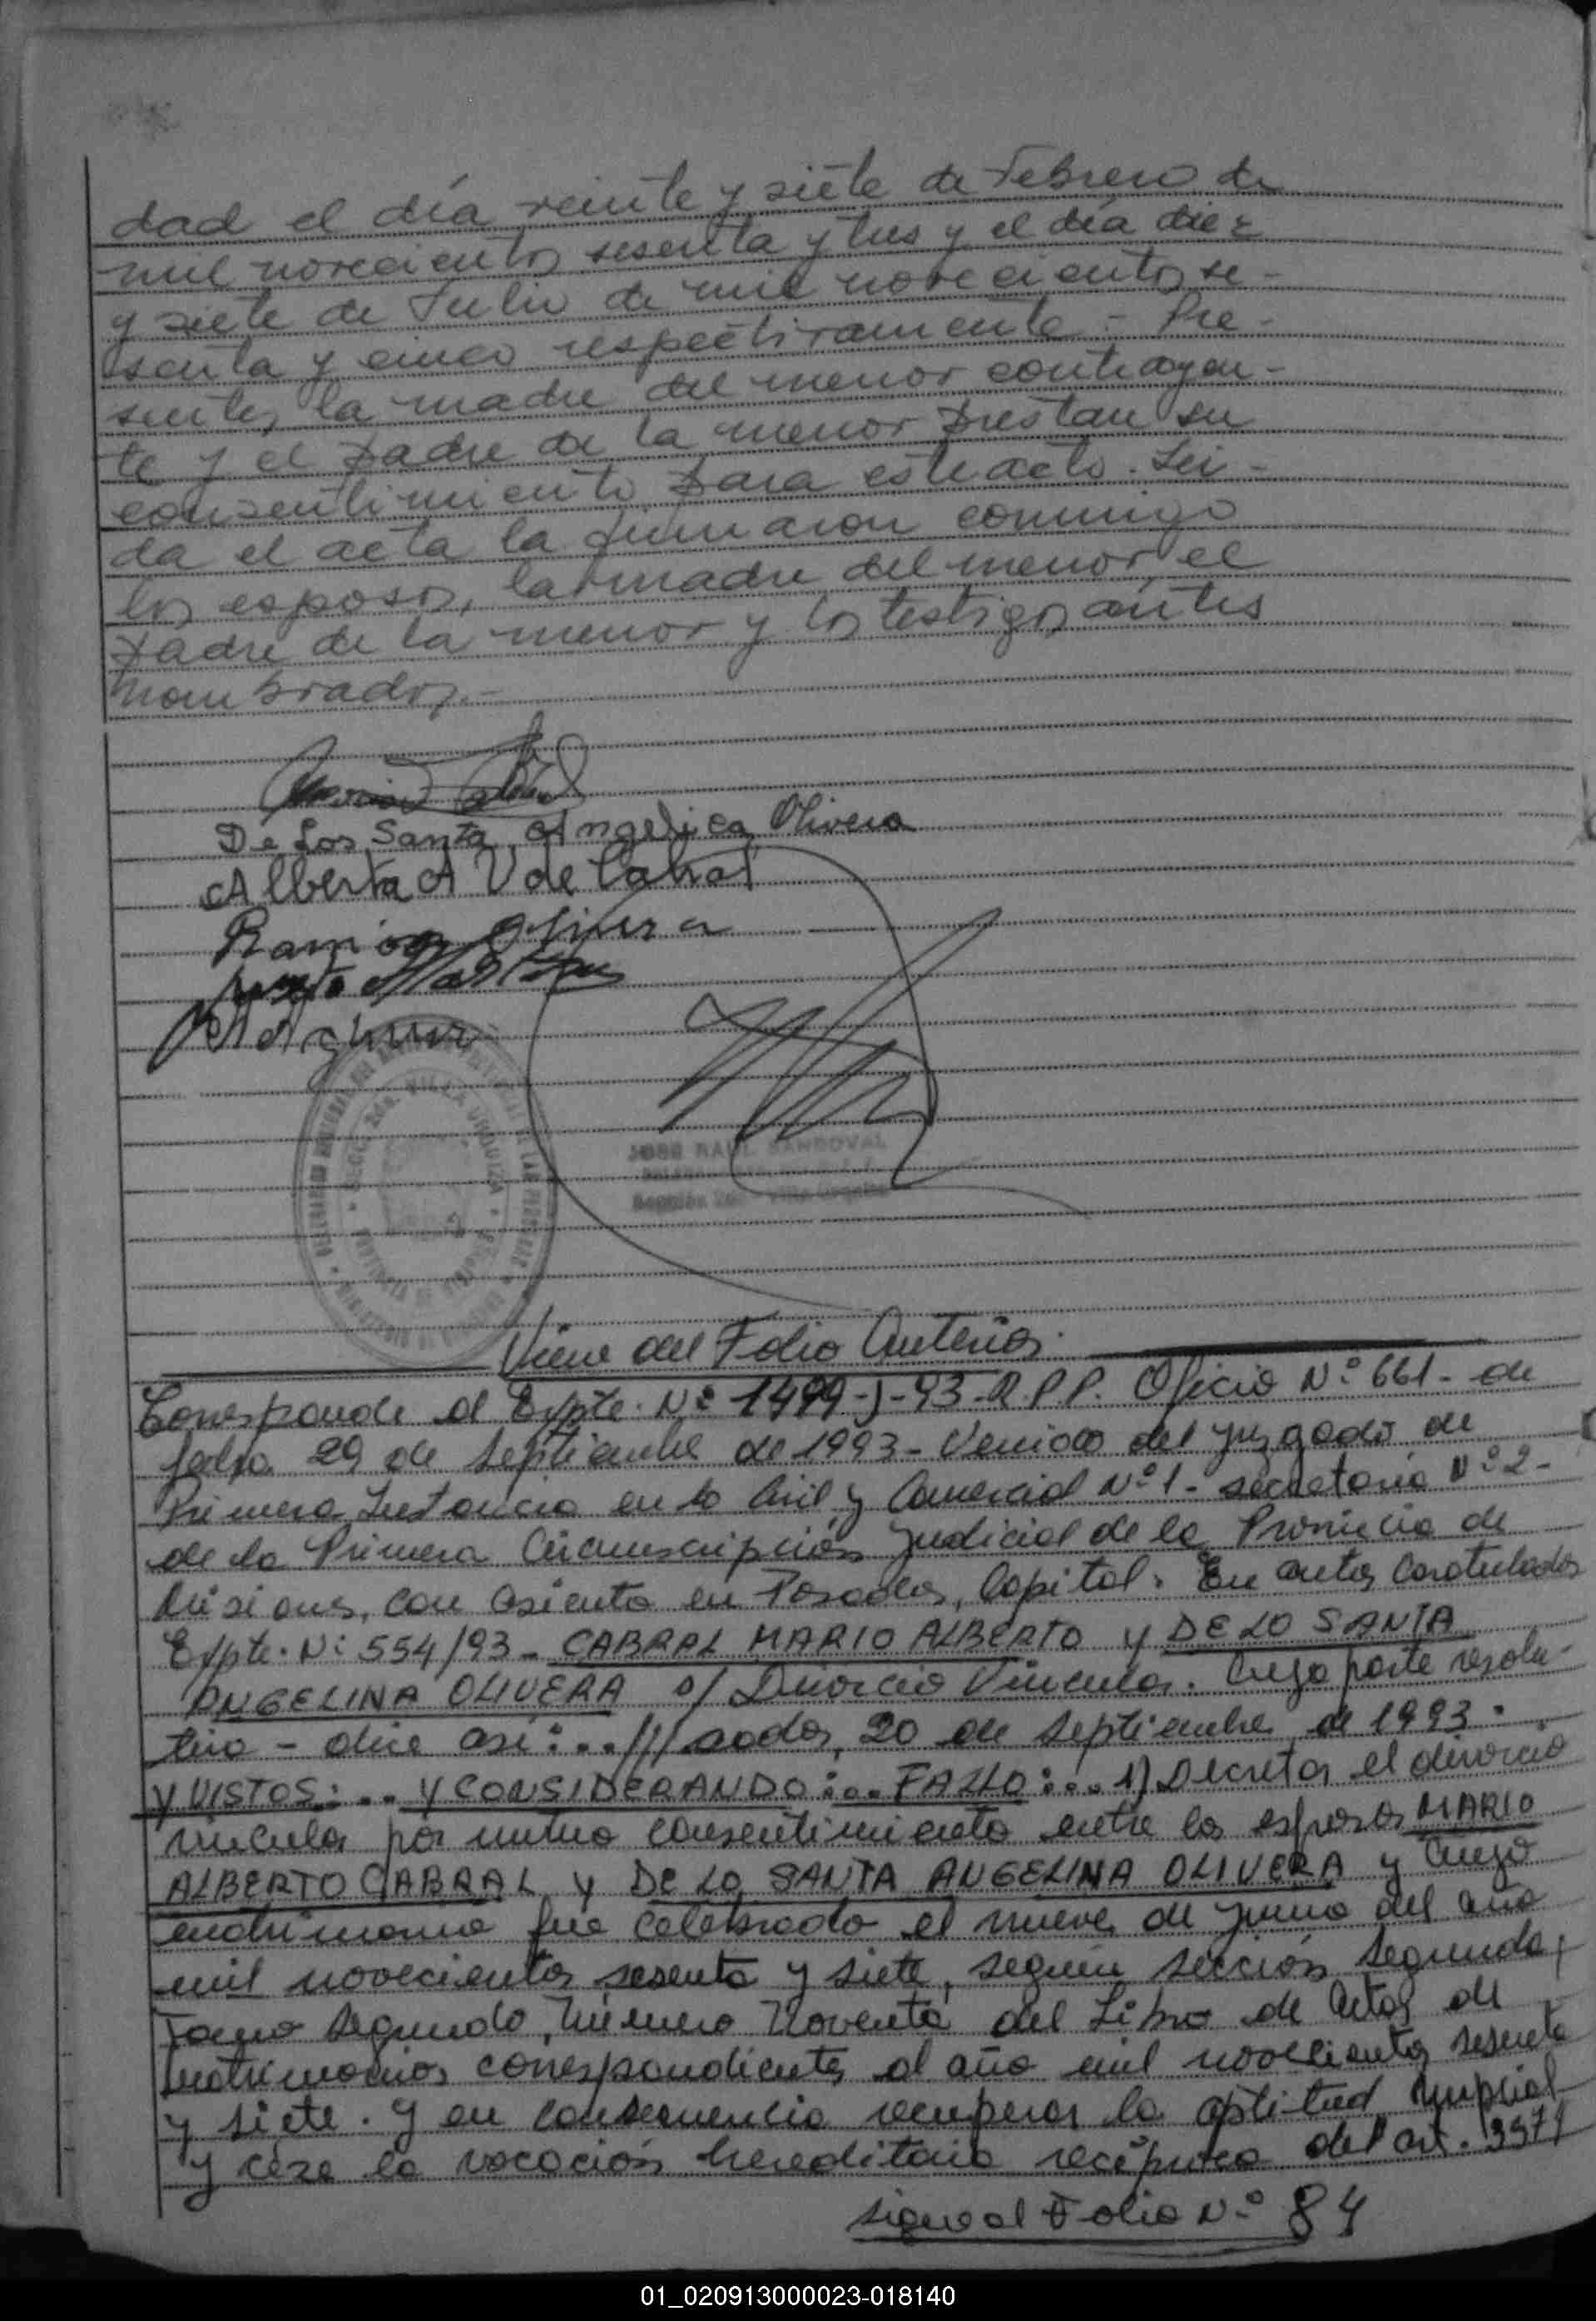 dad el día veinte y siete de Febrero de
mil novecientos sesenta y tres y el día diez
y siete de Julio de mil novecientos se-
senta y cinco respectivamente - Pre-
sentes la madre del menor contrayen-
te y el padre de la menor prestan su
consentimiento para este acto. Lei-
da el acta la firmaron conmigo
los esposos, la madre del menor el
padre de la menor y los testigos antes
nombrados.-
De Los Santa Angelica Olivera
Alberta A V de Cabral
Ramon Olivera
JOSE RAUL SANDOVAL
Viene del Folio Anterior.
Corresponde al Expte. Nº 1499-J-93-R.P.P. Oficio Nº 661- de
fecha 29 de Septiembre de 1993- Venido del Juzgado de
Primera Instancia en lo Civil y Comercial Nº 1- secretaria Nº 2-
de la Primera Circunscripción Judicial de la Provincia de
Misiones, con asiento en Posadas, Capital. En autos Caratulados
Expte. Nº 554/93- CABRAL MARIO ALBERTO y DE LO SANTA
ANGELINA OLIVERA s/ Divorcio Vincular. Cuya parte resolu-
tiva - dice así:..///sadas, 20 de Septiembre de 1993.
Y VISTOS:... Y CONSIDERANDO:... FALLO:... 1) Decretar el divorcio
vincular por mutuo consentimiento entre los esposos MARIO
ALBERTO CABRAL y DE LO SANTA ANGELINA OLIVERA y Cuyo
matrimonio fue celebrado el nueve de Junio del año
mil novecientos sesenta y siete, según sección Segunda,
Tomo Segundo, Número Noventa del Libro de Actas de
Matrimonios correspondientes al año mil novecientos sesenta
y siete. y en consecuencia recuperar la aptitud Nupcial
y cese la vocación hereditaria recíproca del art. 3574
sigue al Folio Nº 84
01_020913000023-018140